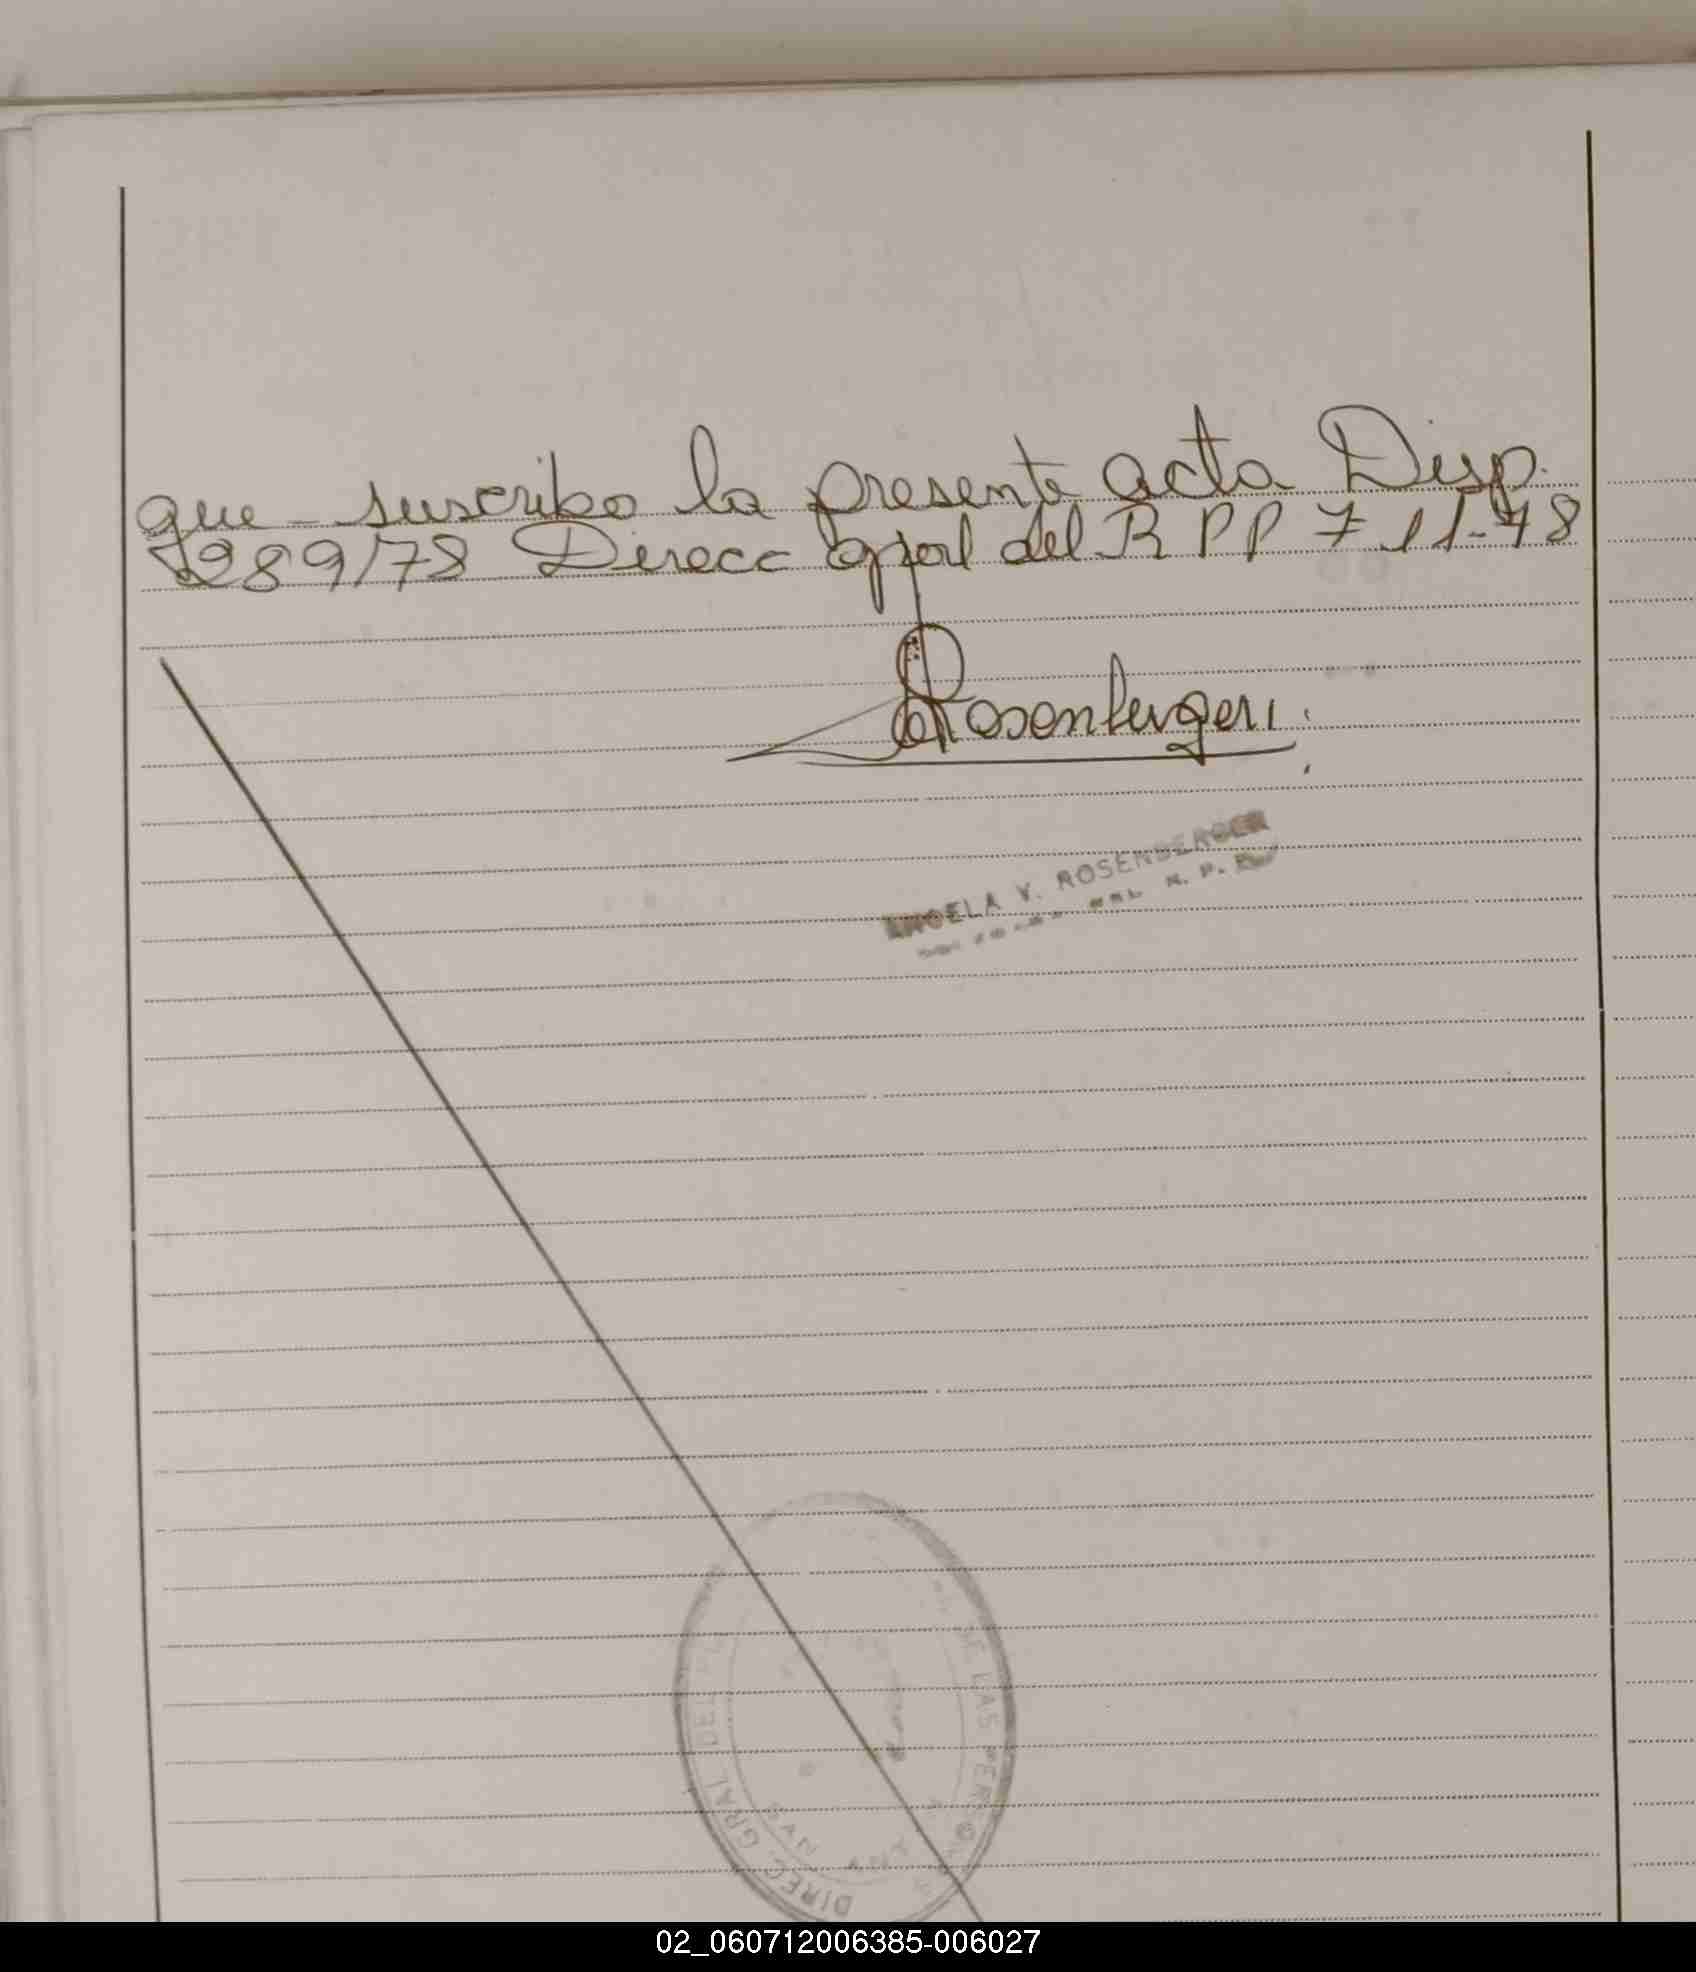 que - suscribo la presente acta Disp.
289/78 Direcc gral del R P P 7-11-78
Rosenberger
ANGELA V. ROSENBERGER
DIREC GRAL DEL DE LAS PERSONAS
02_060712006385-006027